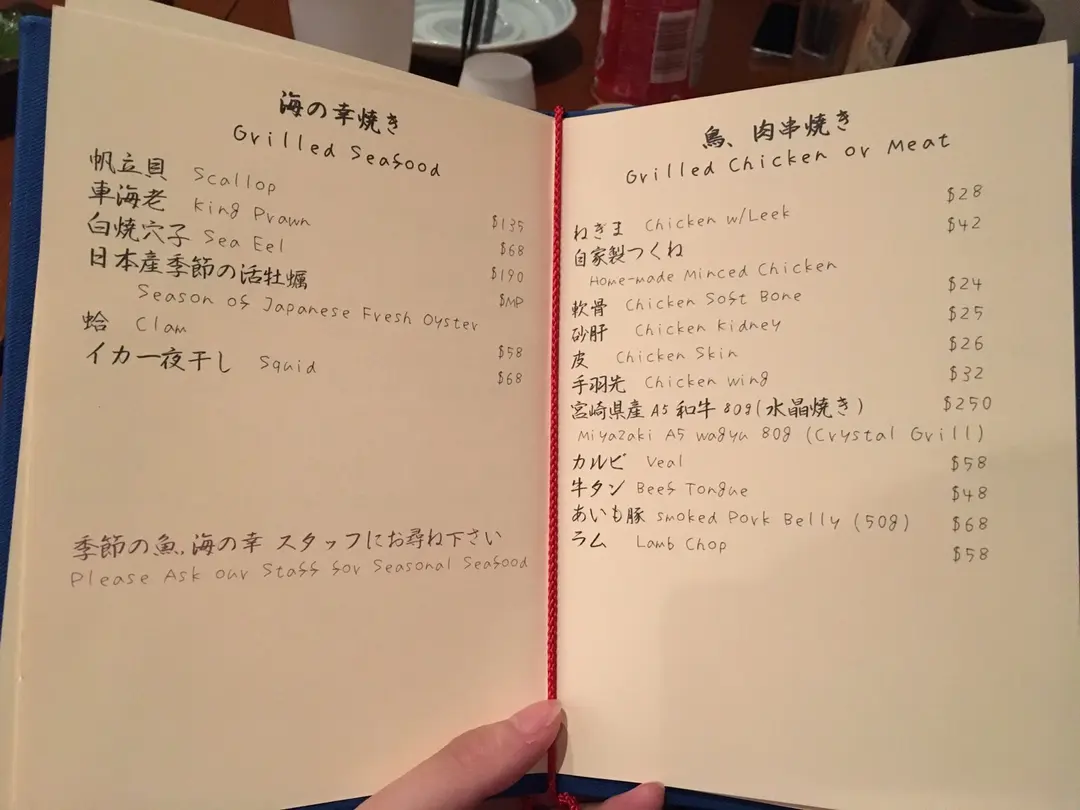 海の幸焼き
Grilled Seafood
帆立貝 Scallop $135
車海老 King Prawn $68
白焼穴子 Sea Eel $190
日本産季節の活牡蠣 $MP
Season of Japanese Fresh Oyster
蛤 Clam $58
イカ一夜干し Squid $68
季節の魚,海の幸 スタッフにお尋ね下さい
Please Ask our Staff for Seasonal Seafood
鳥、肉串焼き
Grilled Chicken or Meat
ねぎま Chicken w/Leek $28
自家製つくね $42
Home-made Minced Chicken
軟骨 Chicken Soft Bone $24
砂肝 Chicken Kidney $25
皮 Chicken Skin $26
手羽先 Chicken wing $32
宮崎県産 A5 和牛 80g(水晶焼き) $250
Miyazaki A5 wagyu 80g (Crystal Grill)
カルビ Veal $58
牛タン Beef Tongue $48
あいも豚 smoked Pork Belly (50g) $68
ラム Lamb Chop $58